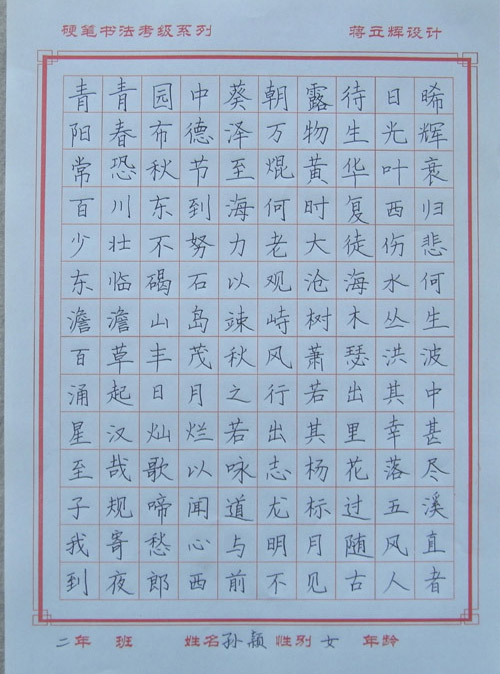 硬笔书法考级系列 蒋立辉设计
青青园中葵朝露待日晞
阳春布德泽万物生光辉
常恐秋节至焜黄华叶衰
百川东到海何时复西归
少壮不努力老大徒伤悲
东临碣石以观沧海水何
澹澹山岛竦峙树木丛生
百草丰茂秋风萧瑟洪波
涌起日月之行若出其中
星汉灿烂若出其里幸甚
至哉歌以咏志杨花落尽
子规啼闻道龙标过五溪
我寄愁心与明月随风直
到夜郎西前不见古人者
二年 班 姓名孙颖 性别女 年龄